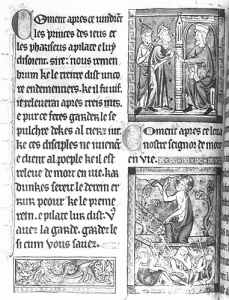 Coment apres ce vindrēt
les princes des ieus et
les phariseus a pilate e luy
disoient. sire. nous remen
brum ke le treitre dist unco
re en dementiers. ke il fu vif.
ie releuerai apres treis iurs.
e pur ce feres garder le se
pulchre dekes al tierz iur.
ke ces disciples ne uienēt
e dient al poeple ke il est
releue de mort en vie. kar
dunkes serreit le derein er
rur peour ke le preme
rein. e pilate lur dist. V
auez la garde. gardez le
si cum vous sauez.
Coment apres ce leua
nostre seignor de mort
en vie.